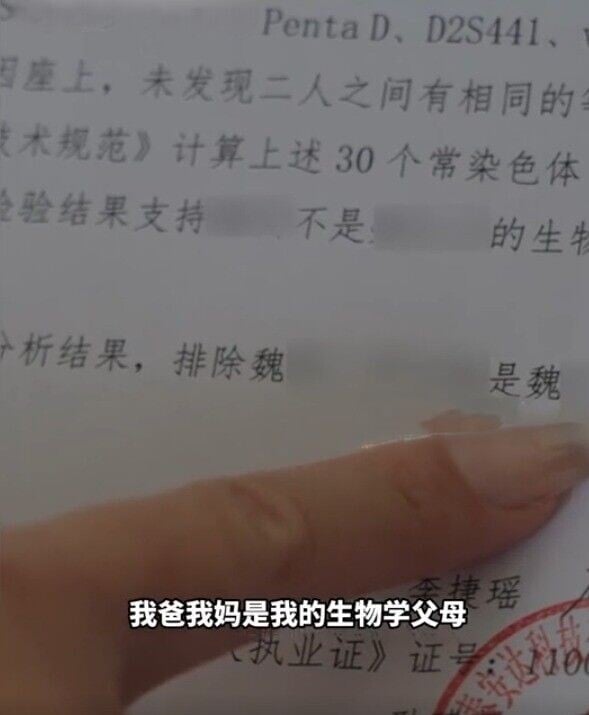 Penta D、D2S441、
因座上，未发现二人之间有相同的等
技术规范》计算上述 30 个常染色体
检验结果支持 不是 的生物
分析结果，排除魏 是魏
李捷瑶
我爸我妈是我的生物学父母
《执业证》证号：1100
泰安达科技